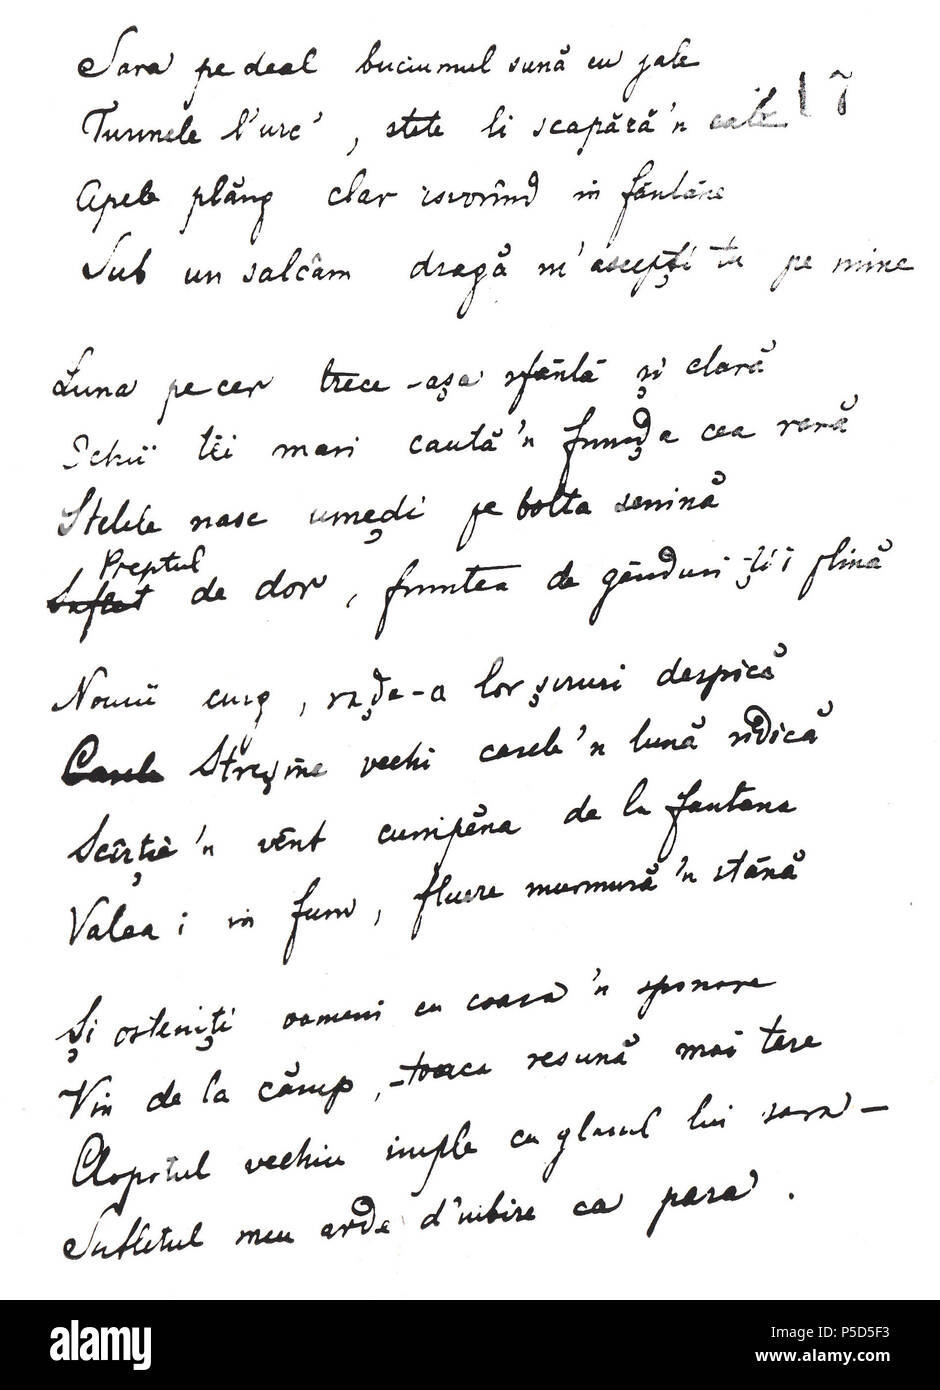 Sara pe deal buciumul sună cu jale
17
Turmele l'urc', stele li scapără 'n cale
Apele plâng clar isvorînd in fântâne
Sub un salcâm dragă m'ascepți tu pe mine
Luna pe cer trece-așa sfântă și clară
Ochii tĕi mari caută 'n frunḑa cea rară
Stelele nasc umeḑi pe bolta senină
Preptul
Suflet de dor, fruntea de gânduri ți-i plină
Nourii curg, raḑe-a lor șiruri despică
Casele Streșine vechi casele 'n lună ridică
Scîrție 'n vênt cumpăna de la fantana
Valea i in fum, fluere murmură 'n stână
Și osteniți oameni cu coasa 'n spinare
Vin de la câmp, -toaca resună mai tare
Clopotul vechiu imple cu glasul lui sara –
Sufletul meu arde d'iubire ca para.
alamy
alamy stock photo
P5D5F3
www.alamy.com